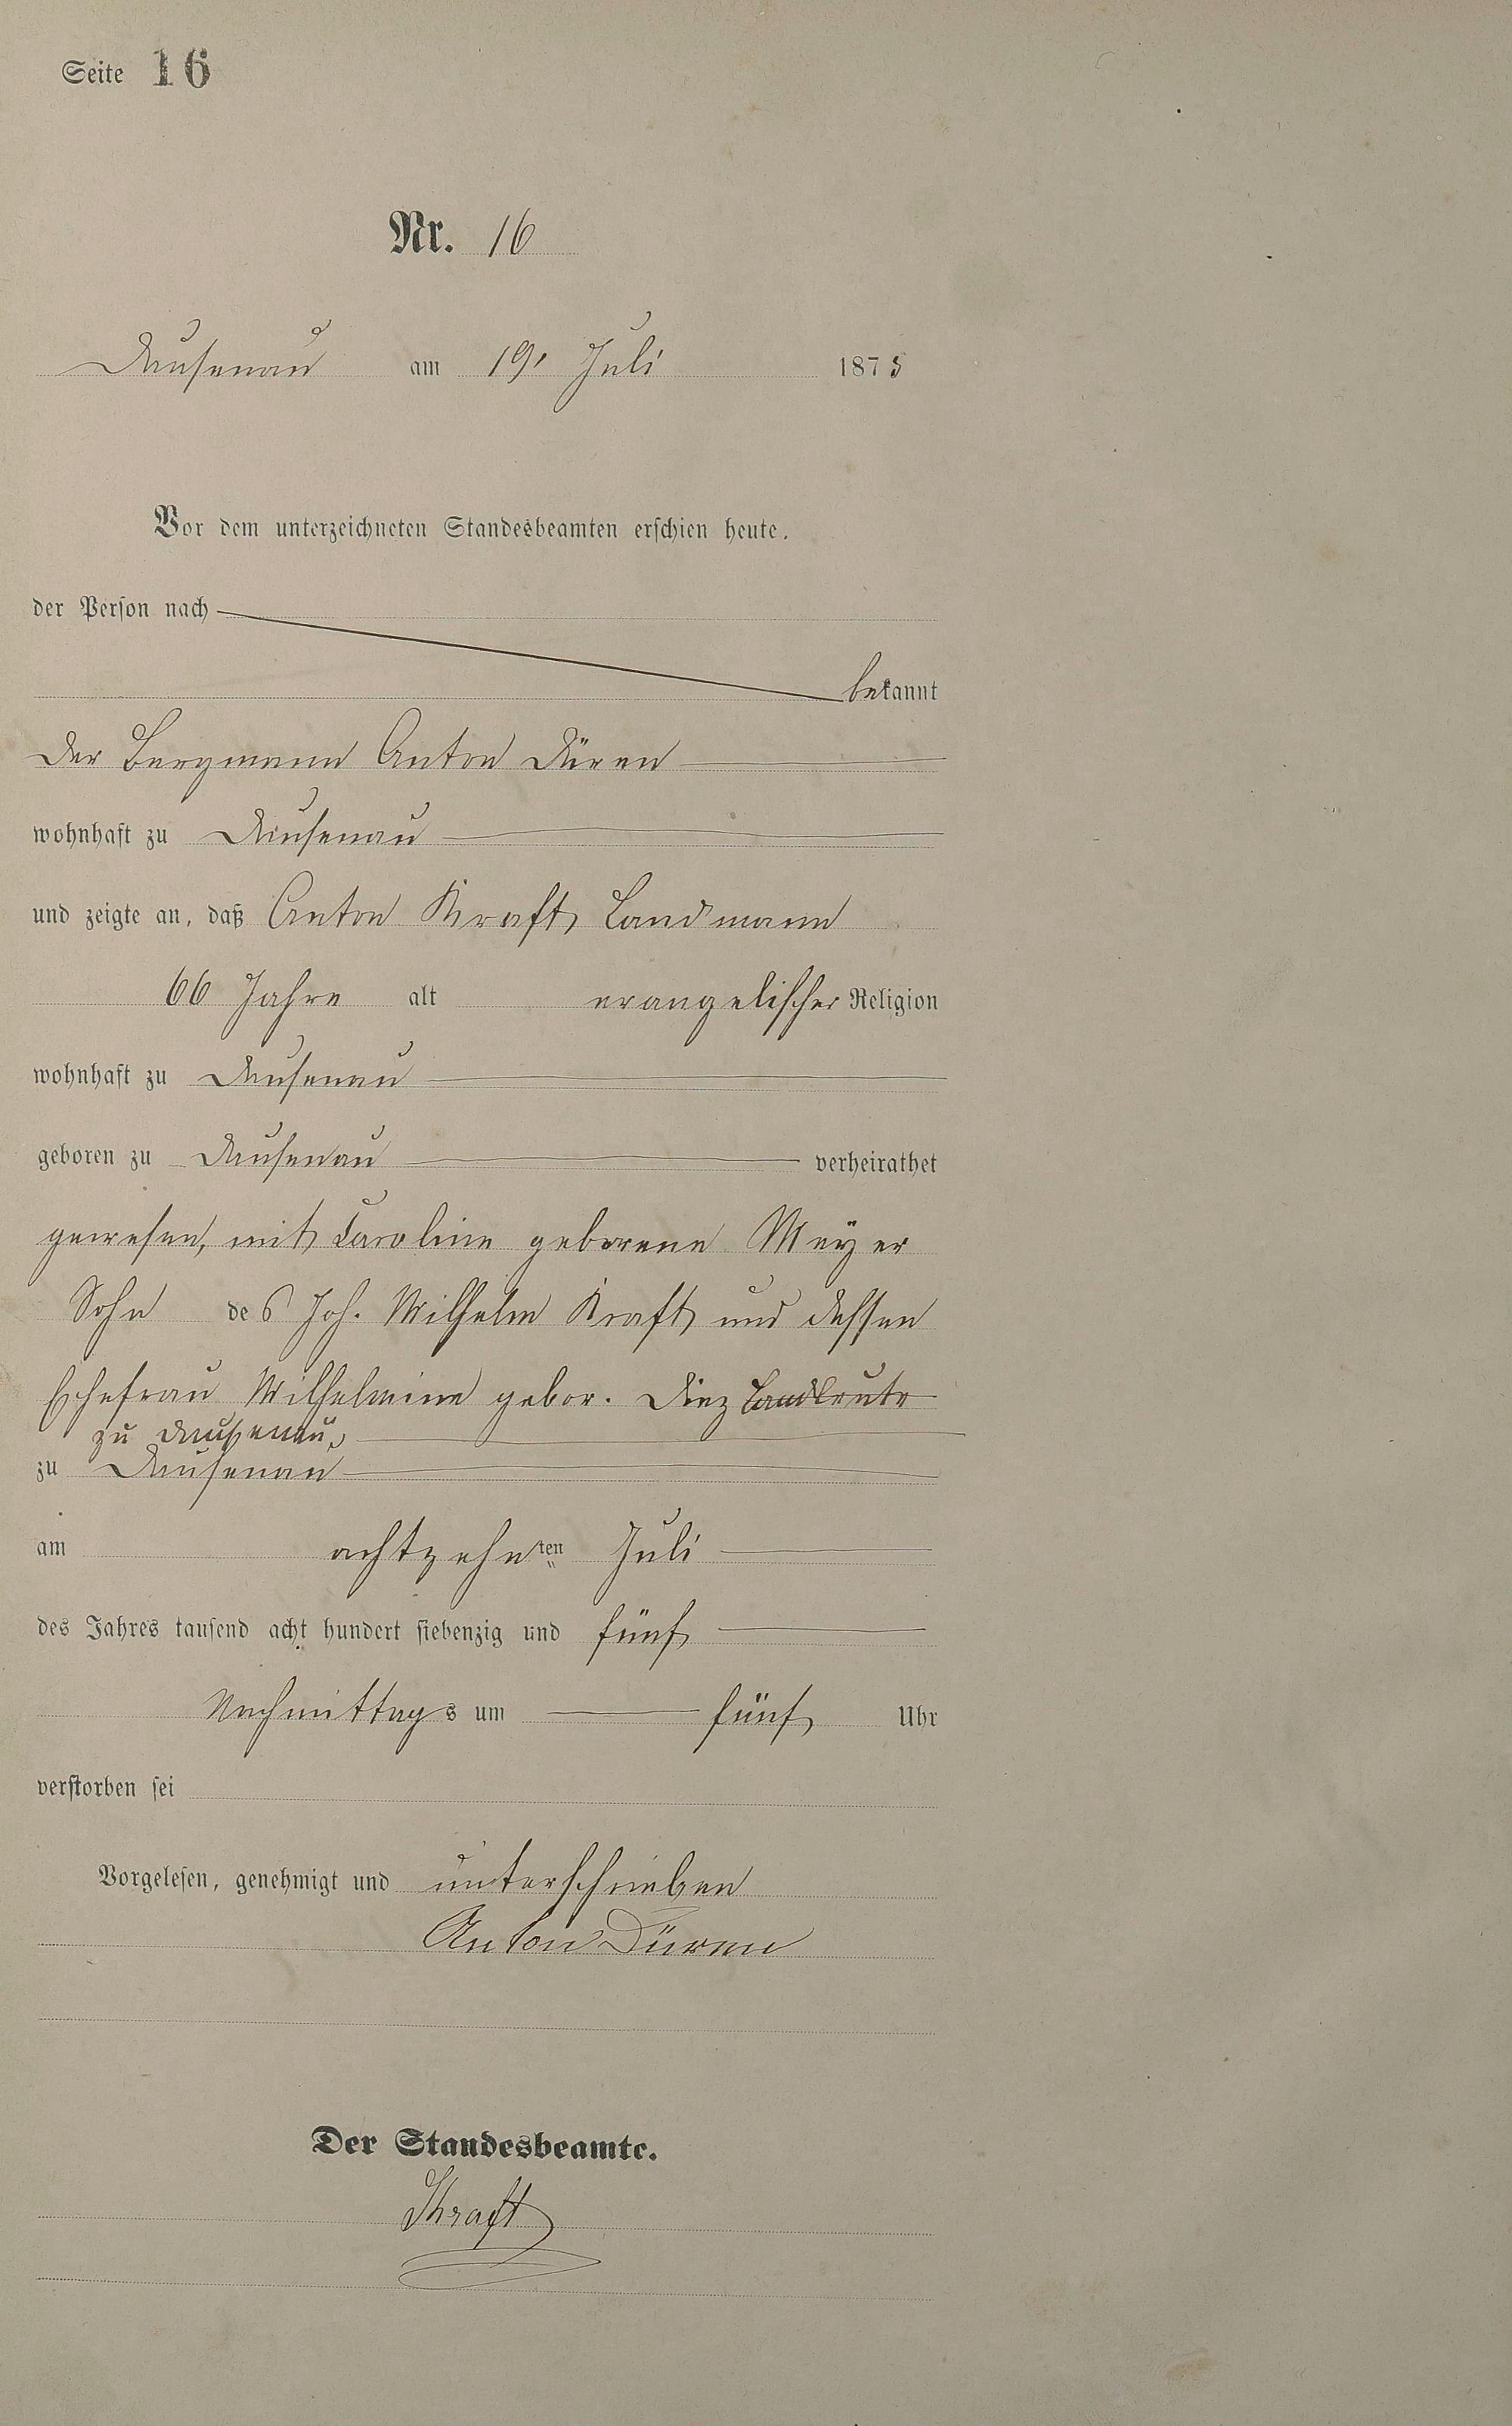 Seite 16
Nr. 16
Dausenau am 19. Juli 1875
Vor dem unterzeichneten Standesbeamten erschien heute,
der Person nach
bekannt
der Bergmann Anton Düren
wohnhaft zu Dausenau
und zeigte an, daß Anton Kraft, Landmann
66 Jahre alt evangelischer Religion
wohnhaft zu Dausenau
geboren zu Dausenau verheirathet
gewesen, mit Caroline geborene Meyer
Sohn des Joh. Wilhelm Kraft und dessen
Ehefrau Wilhelmine gebor. Diez Landleute
zu Dausenau,
zu Dausenau
am achtzehnten Juli
des Jahres tausend acht hundert siebenzig und fünf
Nachmittags um fünf Uhr
verstorben sei
Vorgelesen, genehmigt und unterschrieben
Anton Düren
Der Standesbeamte.
Kraft